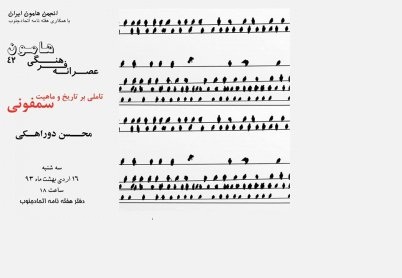 انجمن هامون ایران
با همکاری هفته نامه اتحادجنوب
هامون
عصرانه فرهنگی
۴۲
تاملی بر تاریخ و ماهیت
سمفونی
محسن دوراهکی
سه شنبه
۱۶ اردیبهشت ماه ۹۳
ساعت ۱۸
دفتر هفته نامه اتحادجنوب